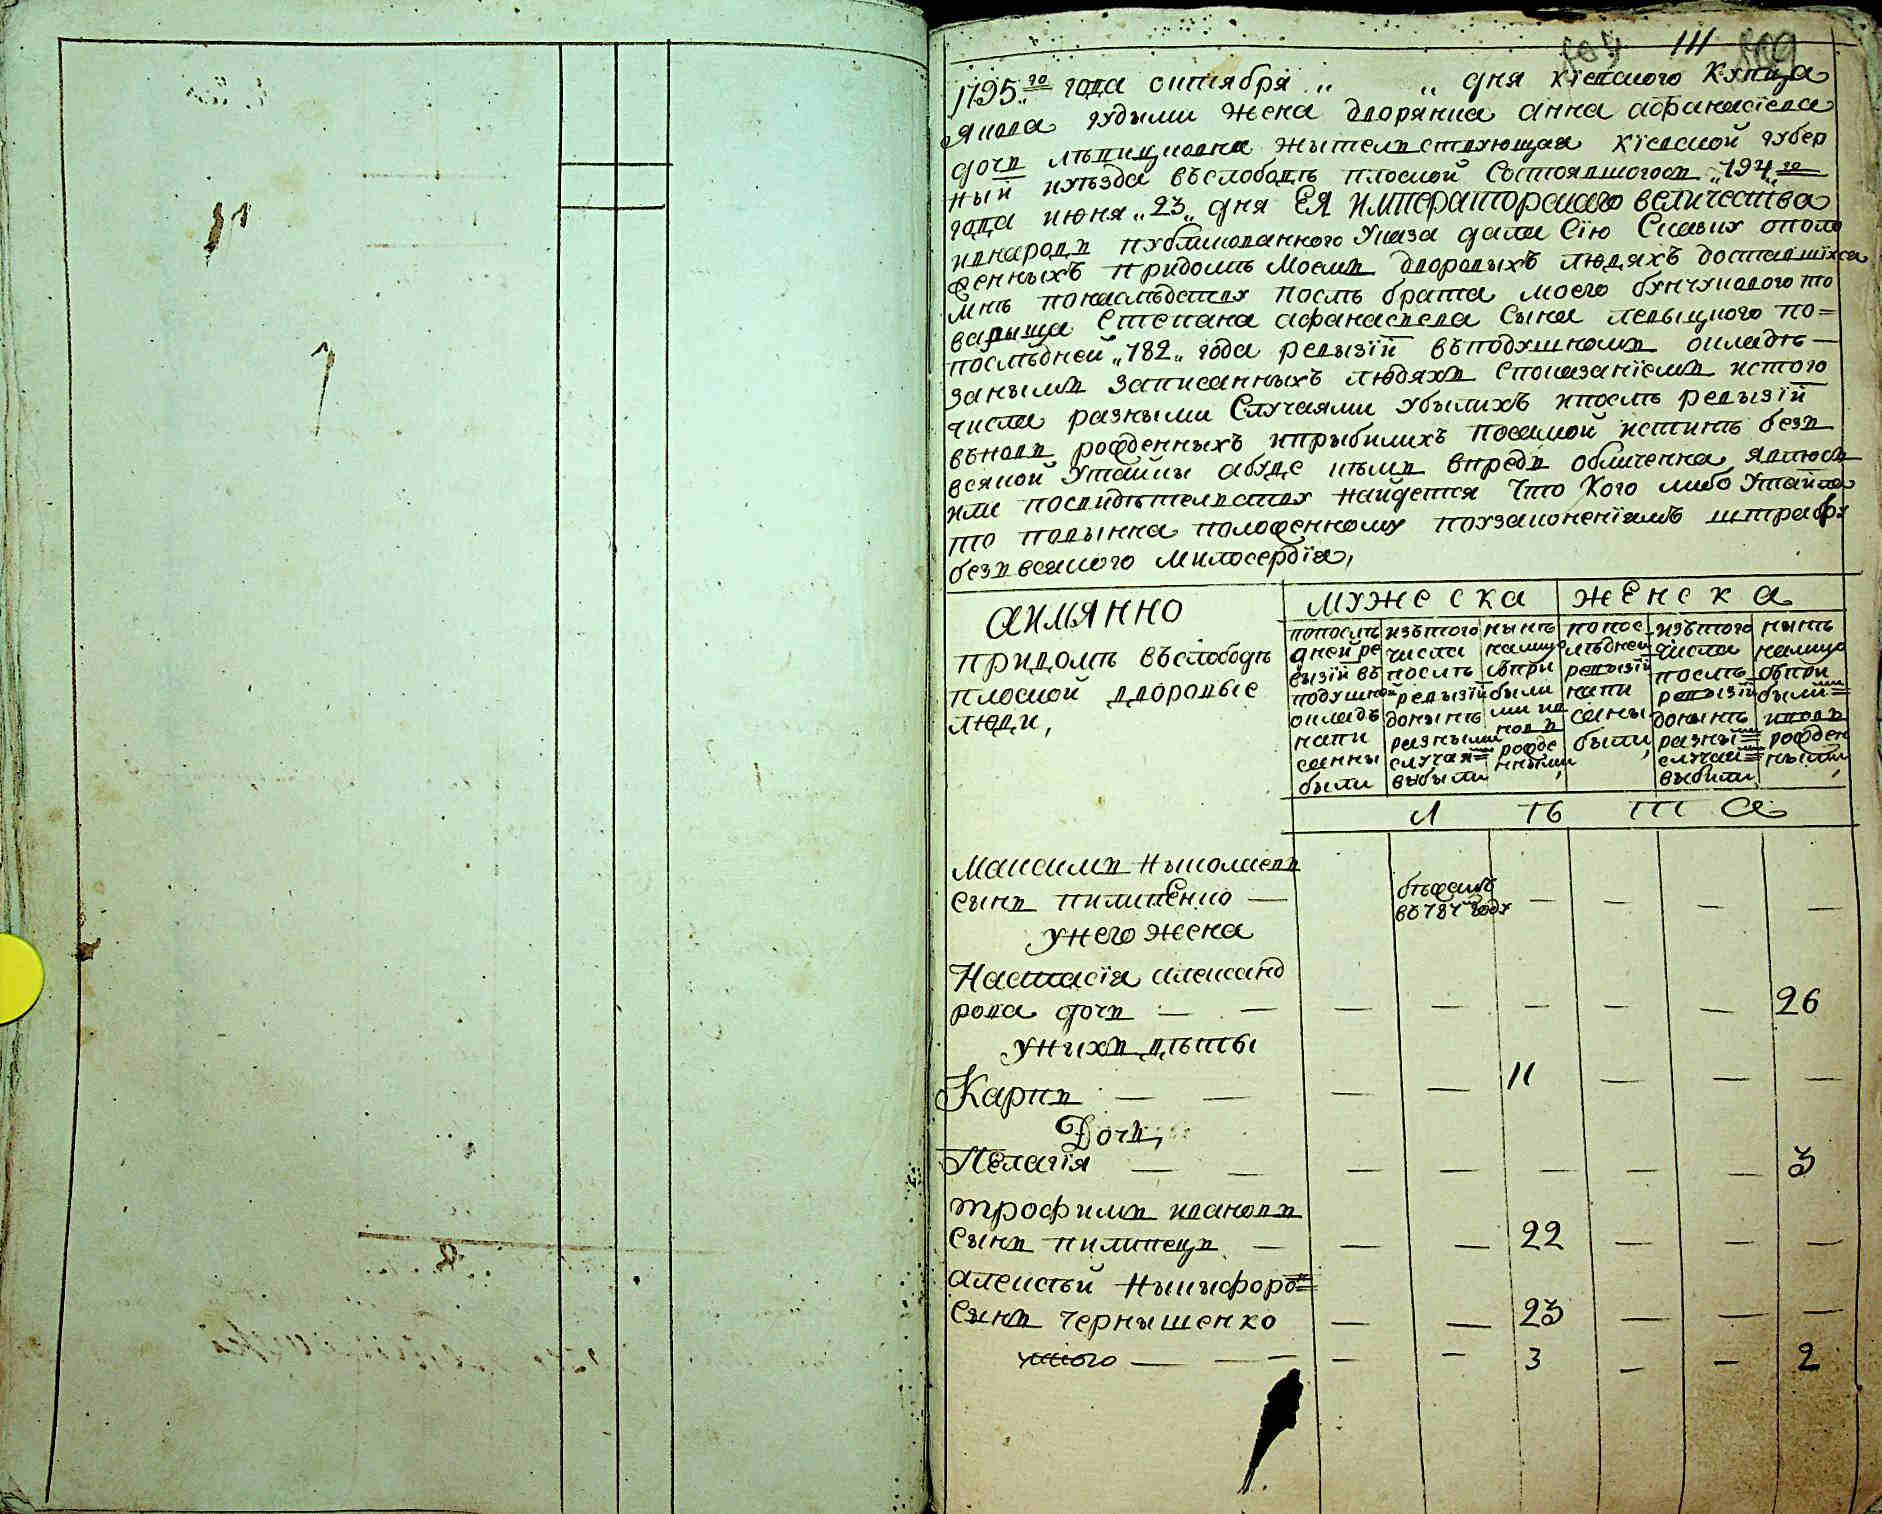 111
1795 го года октября „ „ дня кїевского купца
якова гудыми жена дворянка анна афанасїева
дочь лѣпицковна жытельствующая кїевской губер
ный иуѣзда въслободѣ плоской состоявшогось „794 го
года июня „23„ дня ЕЯ ИМПЕРАТОРСКАГО ВЕЛИЧЕСТВА
ивнародъ публикованного Указа дала Сїю Сказку
женныхъ придомѣ моемъ дворовыхъ людяхъ доставшихся
мнѣ понаслѣдству послѣ брата моего бунчукового то
варыща Степана афанасьева сына левыцкого по=
послѣдней „782„ года ревызїй въподушномъ окладѣ —
занымъ записанныхъ людяхъ споказанїемъ истого
числа разными Случаями убылихъ ипослѣ ревызїй
вновь рожденныхъ ипрыбилихъ посамой истинѣ безъ
всякой Утайкы абуде кѣмъ впредь обличенна явлюсь
или посвидѣтельству найдется Что Кого либо Утайла
то повынна положенному поузаконенїамъ штрафу
безъ всякого милосердїя,
аимянно
придомѣ въслободѣ
плоской дворовые
люди,
мужеска женска
попослѣ
дней ре
вызїй въ
подушной
окладъ
напи
санны
были
изътого
числа
послѣ
ревызїй
донынѣ
разными
случая=
выбыли
нынѣ
налицо
съпри
были
ми из
новъ
рожде
нными,
попос
лѣдней
ревызїй
напи
саны
были,
изътого
числа
послѣ
ревызїй
донынѣ
разны=
случаи=
выбыли
нынѣ
налицо
съпри
были=
ивовъ
рожден
ными,
лѣта
максимъ ныколаевъ
сынъ пилипенко — бѣжалъ въ787 году — — — —
унего жена
Настасїя александ
рова дочь — — — — — — — 26
унихъ дѣты
Карпъ — — — — 11 — — —
Дочь,
Пелагїя — — — — — — — 3
трофимъ ивановъ
сынъ пилипецъ — — — 22 — — —
алексѣй ныкыфоро=
сынъ чернышенко — — 23 — — —
итого — — — — — 3 — — 2